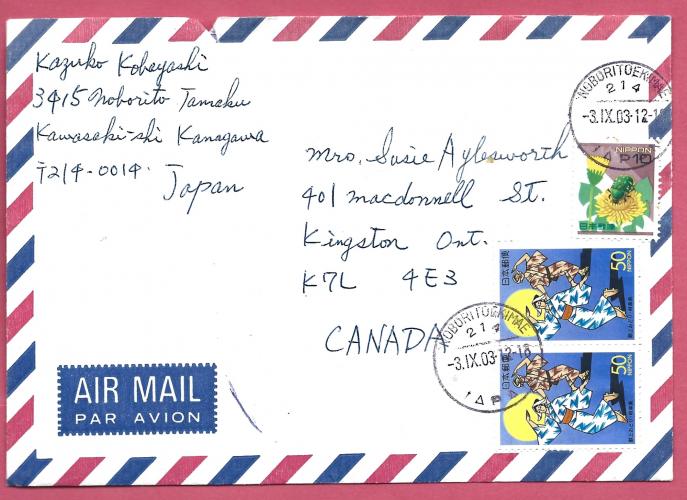 Kazuko Kobayashi
3415 Noborito Tamaku
Kawasaki-shi Kanagawa
〒214-0014
Japan
Mrs. Susie Aylesworth
401 Macdonnell St.
Kingston Ont.
K7L 4E3
CANADA
AIR MAIL
PAR AVION
NOBORITOEKIMAE
214
-3.IX.03-12-18
JAPAN
NIPPON
10
日本郵便
50
NIPPON
日本郵便
NOBORITOEKIMAE
214
-3.IX.03-12-18
JAPAN
50
NIPPON
日本郵便